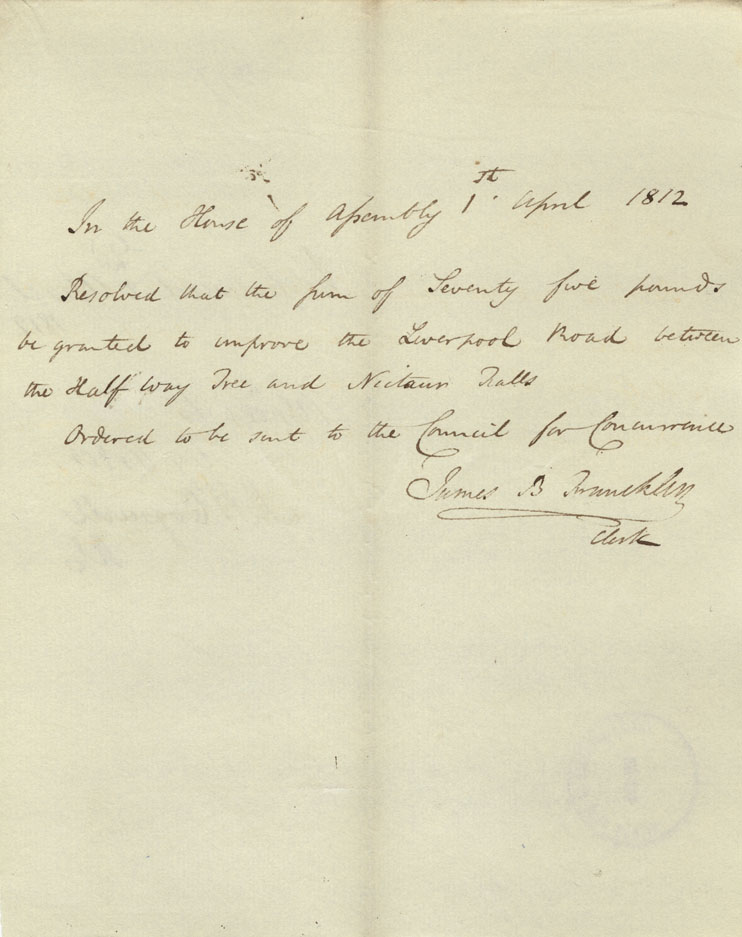 In the House of Assembly 1st April 1812
Resolved that the sum of Seventy five pounds
be granted to improve the Liverpool Road between
the Half way Tree and Nictaux Falls
Ordered to be sent to the Council for Concurrence
James B Francklin
Clerk